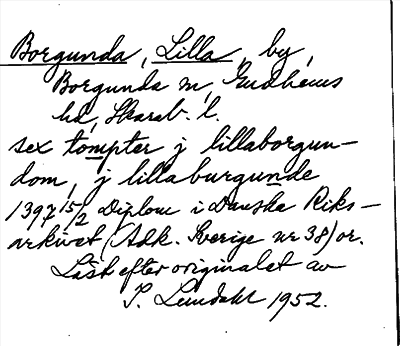 Borgunda, Lilla, by,
Borgunda sn, Gudhems
hd, Skarab. l.
sex tompter j lillaborgun-
dom, j lillaburgunde
1397 15/2 Diplom i Danska Riks-
arkivet (Adk. Sverige nr 38) or.
Läst efter originalet av
I. Lundahl 1952.